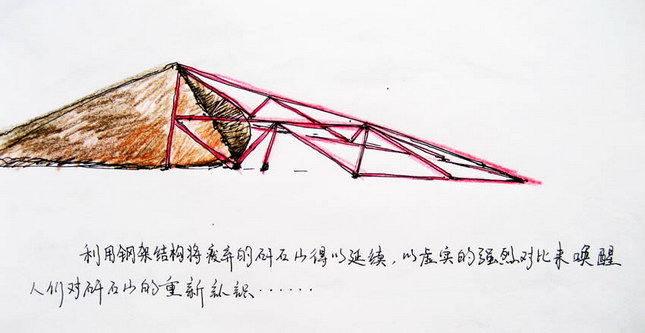 利用钢架结构将废弃的矸石山得以延续，以虚实的强烈对比来唤醒
人们对矸石山的重新认识……